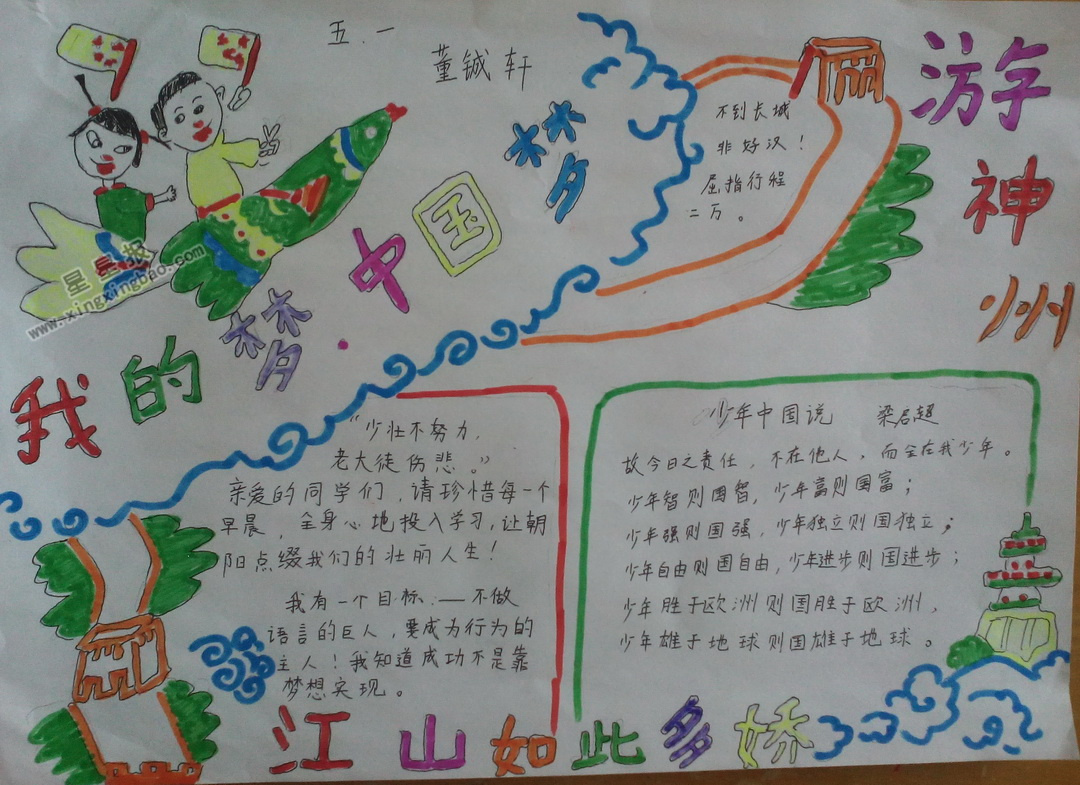 五.一
董铖轩
我的梦·中国梦
游神州
不到长城
非好汉！
屈指行程
二万。
星星报
www.xingxingbao.com
“少壮不努力，
老大徒伤悲。”
亲爱的同学们，请珍惜每一个
早晨，全身心地投入学习，让朝
阳点缀我们的壮丽人生！
我有一个目标：——不做
语言的巨人，要成为行为的
主人！我知道成功不是靠
梦想实现。
少年中国说 梁启超
故今日之责任，不在他人，而全在我少年。
少年智则国智，少年富则国富；
少年强则国强，少年独立则国独立；
少年自由则国自由，少年进步则国进步；
少年胜于欧洲则国胜于欧洲，
少年雄于地球则国雄于地球。
江山如此多娇